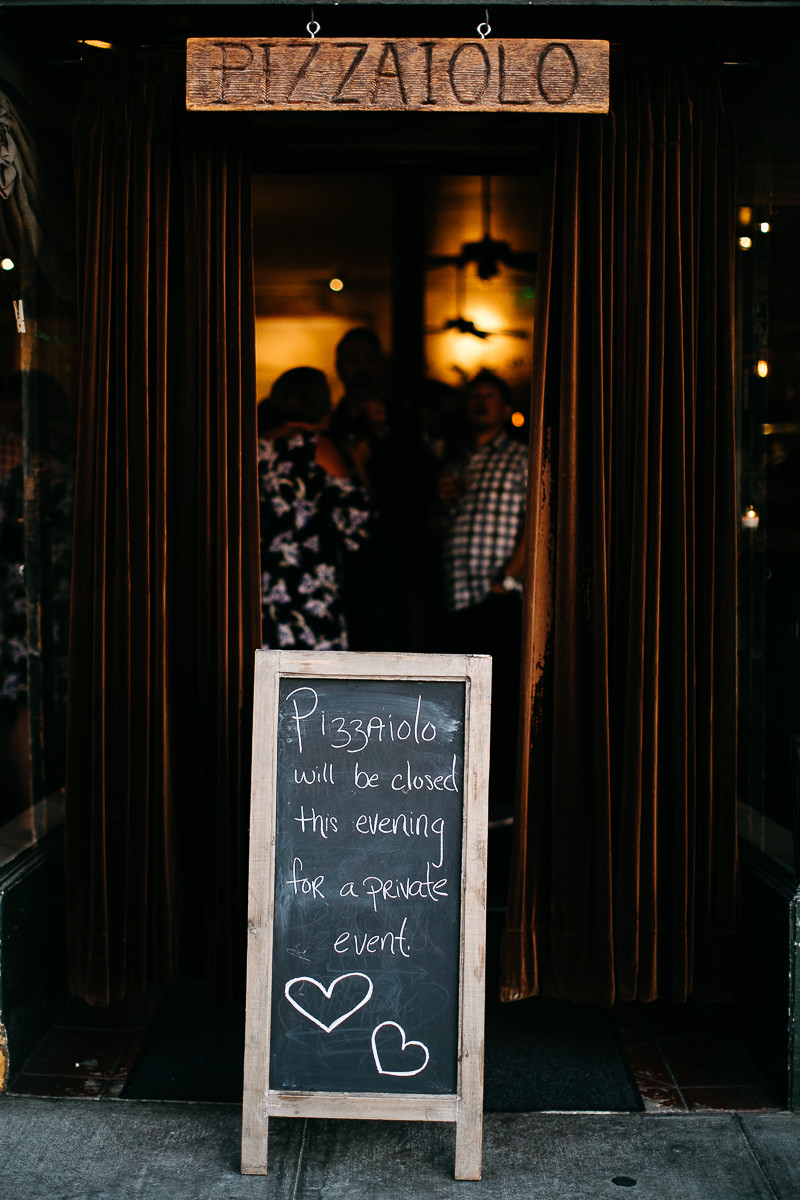 PIZZAIOLO
Pizzaiolo
will be closed
this evening
for a private
event.